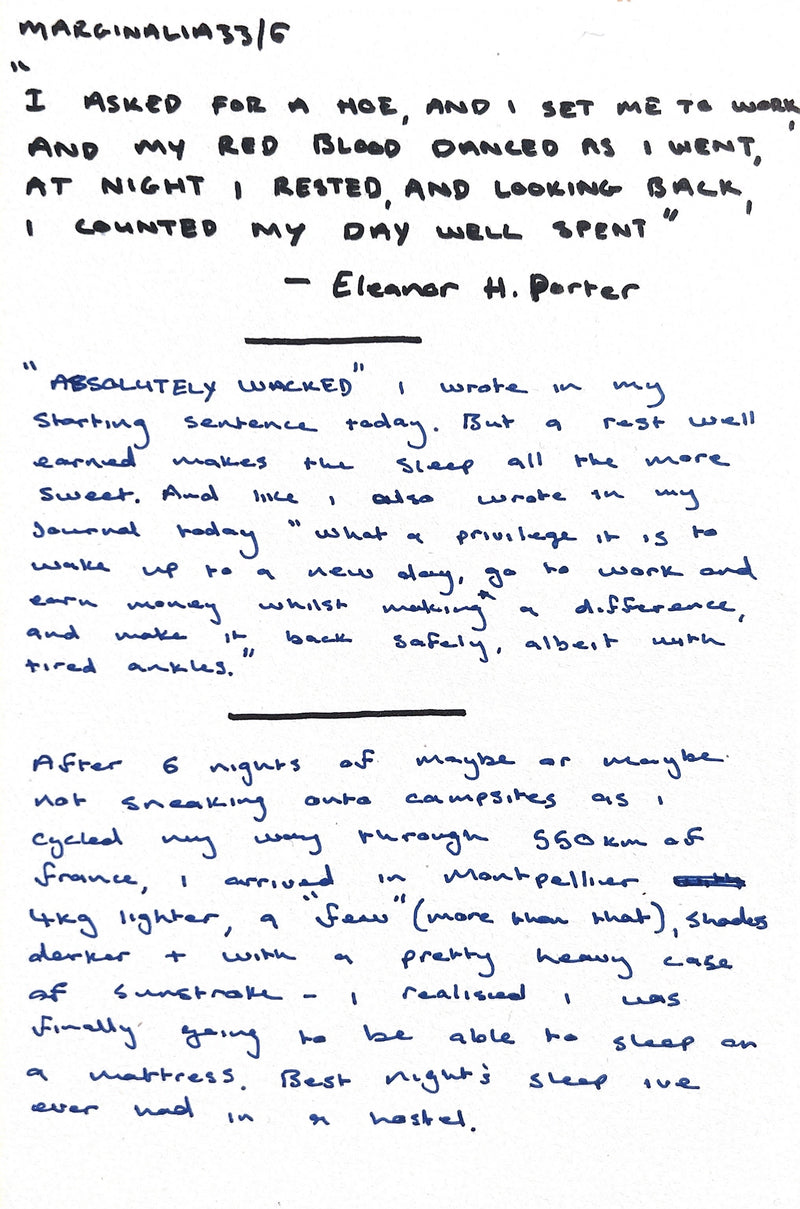 MARGINALIA33/6
"
I ASKED FOR A HOE, AND I SET ME TO WORK,
AND MY RED BLOOD DANCED AS I WENT,
AT NIGHT I RESTED, AND LOOKING BACK,
I COUNTED MY DAY WELL SPENT"
— Eleanor H. Porter
"ABSOLUTELY WACKED" I wrote in my
starting sentence today. But a rest well
earned makes the sleep all the more
sweet. And like i also wrote in my
Journal today "what a privilege it is to
wake up to a new day, go to work and
earn money whilst making a difference,
and make it back safely, albeit with
tired ankles."
After 6 nights of maybe or maybe
not sneaking onto campsites as i
cycled my way through 550km of
france, i arrived in Montpellier
4kg lighter, a "few" (more than that), shades
darker + with a pretty heavy case
of sunstroke - i realised i was
finally going to be able to sleep on
a mattress. Best night's sleep ive
ever had in a hostel.